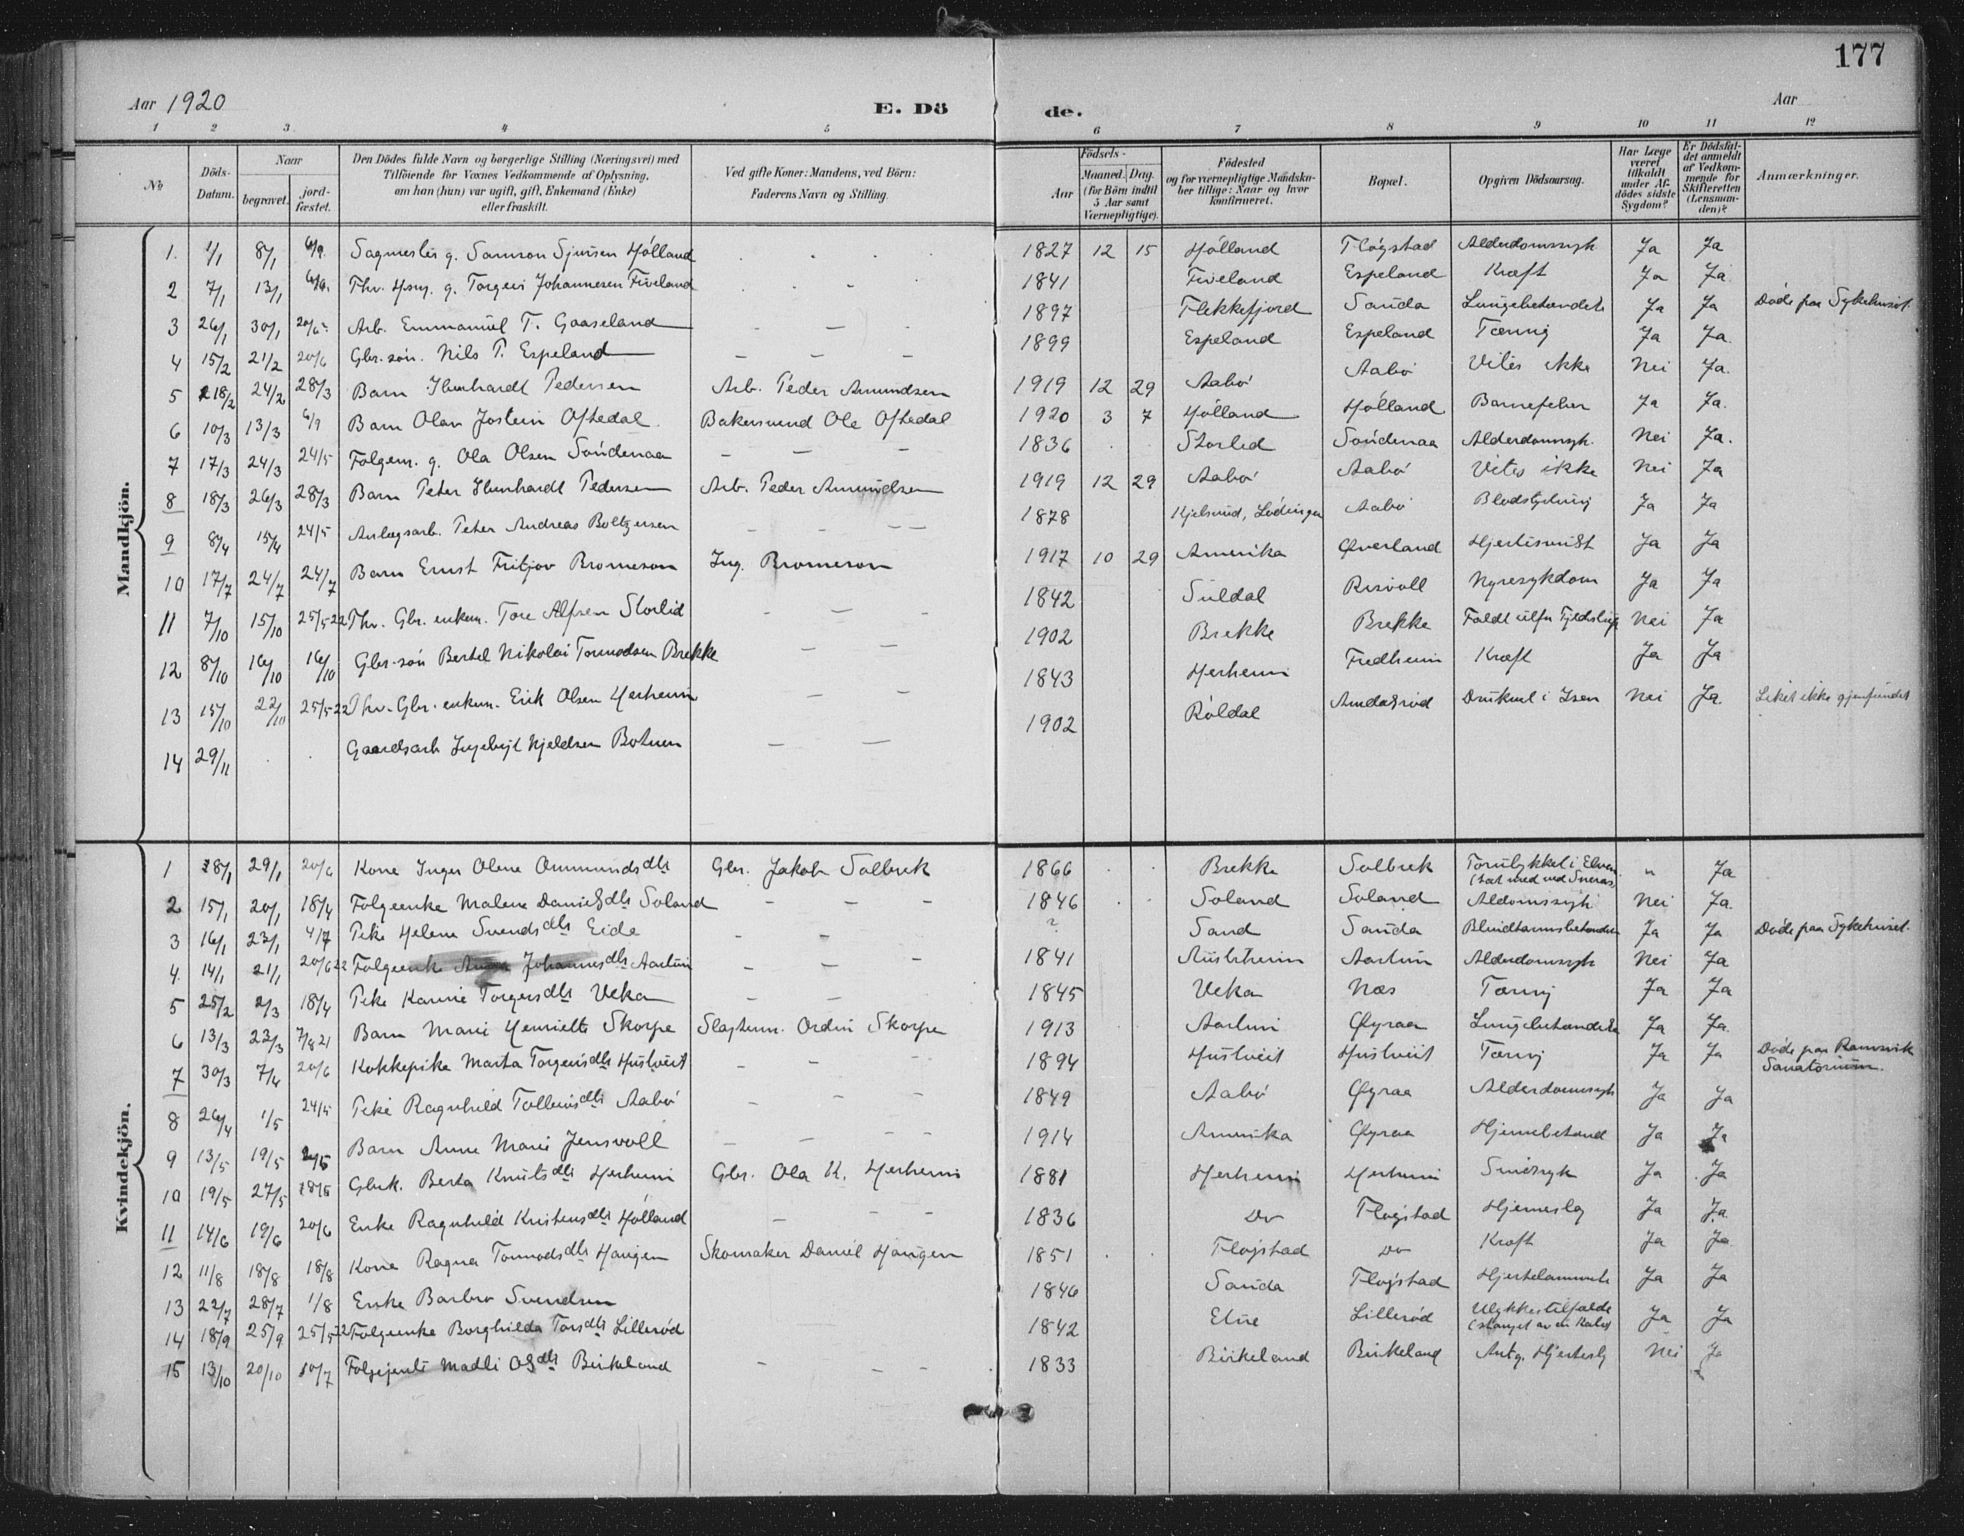 177
Aar 1920 E. Dö de. Aar
1 2 3. 4 5 6 7 8 9 10 11 12
No Döds-Datum. Naar begravet. jord-fæstet. Den Dödes fulde Navn og borgerlige Stilling (Næringsvei) med Tilföiende for Voxnes Vedkommende af Oplysning, om han (hun) var ugift, gift, Enkemand (Enke) eller fraskilt. Ved gifte Koner: Mandens, ved Börn: Faderens Navn og Stilling. Födsels- Aar Maaned. Dag. (for Börn indtil 5 Aar samt Værnepligtige). Födested og for værnepligtige Mandskaber tillige: Naar og hvor konfirmeret. Bopæl. Opgiven Dödsaarsag. Har Læge været tilkaldt under Afdödes sidste Sygdom? Er Dödsfaldet anmeldt af Vedkommende for Skifteretten (Lensmanden)? Anmærkninger.
Mandkjön.
1. 1/1 8/1 6/9 Sagmester g. Samson Sjursen Hölland 1827 12 15 Hölland Flögstad Alderdomssygk Ja Ja
2 7/1 13/1 6/9 Fhv. Hsm. g. Torgeir Johannesen Fiveland 1841 Fiveland Espeland Kræft Ja Ja
3 26/1 30/1 20/6 Arb. Emmanuel T. Gaaseland 1897 Flekkefjord Sauda Lungebetændels Ja Ja Döde paa Sykehuset.
4 15/2 21/2 20/6 Gbr. sön. Nils P. Espeland 1899 Espeland Espeland Tæring Ja Ja.
5 18/2 24/2 28/3 Barn Eberhardt Pedersen Arb. Peder Amundsen 1919 12 29 Aabö Aabö Vites ikke Nei Ja.
6 10/3 13/3 6/9 Barn Olav Jostein Oftedal. Bakersvend Ole Oftedal 1920 3 7 Hölland Hölland Barnefeber Ja Ja.
7 17/3 24/3 24/5 Folgem. g. Ola Olsen Söndenaa 1836 Storlid Söndenaa Alderdomsygk. Nei Ja.
8 18/3 26/3 28/3 Barn Peter Eberhardt Pedersen Arb. Peder Amundsen 1919 12 29 Aabö Aabö Vites ikke Nei Ja
9 8/4 15/4 24/5 Anlægsarb. Peter Andreas Boltzersen 1878 Kjelsund, Lödingen Aabö Blodstyrtning Ja Ja
10 17/7 24/7 24/7 Barn Ernst Fritjov Bromeson Ing. Bromeson 1917 10 29 Amerika Øverland Hjertesvikt Ja Ja
11 7/10 15/10 25/5 22 Fhv. Gbr. enkem. Tore Alfsen Storlid 1842 Suldal Risvoll Nyresykdom Ja Ja
12 8/10 16/10 16/10 Gbr-sön Bertel Nikolai Tormodsen Brekke 1902 Brekke Brekke Faldt utfor Fjeldstup Nei Ja
13 15/10 22/10 25/5 22 Fhv. Gbr. enkem. Erik Olsen Herheim 1843 Herheim Fredheim Kræft Ja Ja
14 29/11 Gaardsarb Ingebrigt Kjeldsen Botnen 1902 Röldal Amdalsröd Druknet i Isen Nei Ja. Liket ikke gjenfundet
Kvindekjön.
1 28/1 29/1 20/6 Kone Inger Oline Ommundsdtr Gbr. Jakob Solbrek 1866 Brekke Solbrek Forulykket i Elven (tat med ved Sneras) " Ja
2 15/1 20/1 18/4 Folgeenke Malene Danielsdtr Soland 1846 Soland Soland Aldomssygk Nei Ja.
3 16/1 23/1 4/7 Pike Helene Svendsdtr Eide ? Sand Sauda Blindtarmsbetændelse Ja Ja Döde paa Sykehuset.
4. 14/1 21/1 20/6 22 Folgeenk Anna Johannesdtr Aartun 1841 Austrheim Aartun Alderdomssygk Nei Ja
5 25/2 2/3 18/4 Pike Karine Torgersdtr Veka 1845 Veka Næs Tæring Ja Ja
6 13/3 23/3 7/8 21 Barn Marie Henriette Skorpe Slagterm. Ordin Skorpe 1913 Aartun Øyraa Lungebetændelse Ja Ja.
7 30/3 7/4 20/6 Kokkepike Marta Torgersdtr Hustveit 1894 Hustveit Hustveit Tæring Ja Ja Döde paa Ramsvik Sanatorium.
8 26/4 1/5 24/5 Pike Ragnhild Tollevsdtr Aabö 1849 Aabö Øyraa Alderdomssygk Ja Ja
9 13/5 19/5 Barn Anne Marie Jensvoll 1914 Amerika Øyraa Hjernebetænd Ja Ja
10 19/5 27/5 Gbrk. Berta Knutsdtr Herheim Gbr. Ola K. Herheim 1881 Herheim Herheim Sindsyk Ja Ja
11 14/6 19/6 20/6 Enke Ragnhild Kristensdtr Hölland 1836 Do Flogstad Hjerneslag Ja Ja
12 11/8 18/8 18/8 Kone Ragna Tormodsdtr Haugen Skomaker Daniel Haugen 1851 Flogstad Do Kræft Ja Ja
13 22/7 28/7 1/8 Enke Barbro Svendsen 1846 Sauda Flogstad Hjertelammels Ja Ja
14 18/9 25/9 25/5 22 Folgeenke Borghilda Torsdtr Lilleröd 1842 Etne Lilleröd Ulykkestilfælde (stanget av en Kalv) Ja Ja
15 13/10 20/10 10/7 Folgejente Madli Olsdtr Birkeland 1833 Birkeland Birkeland Antg. Hjertesl. Nei Ja